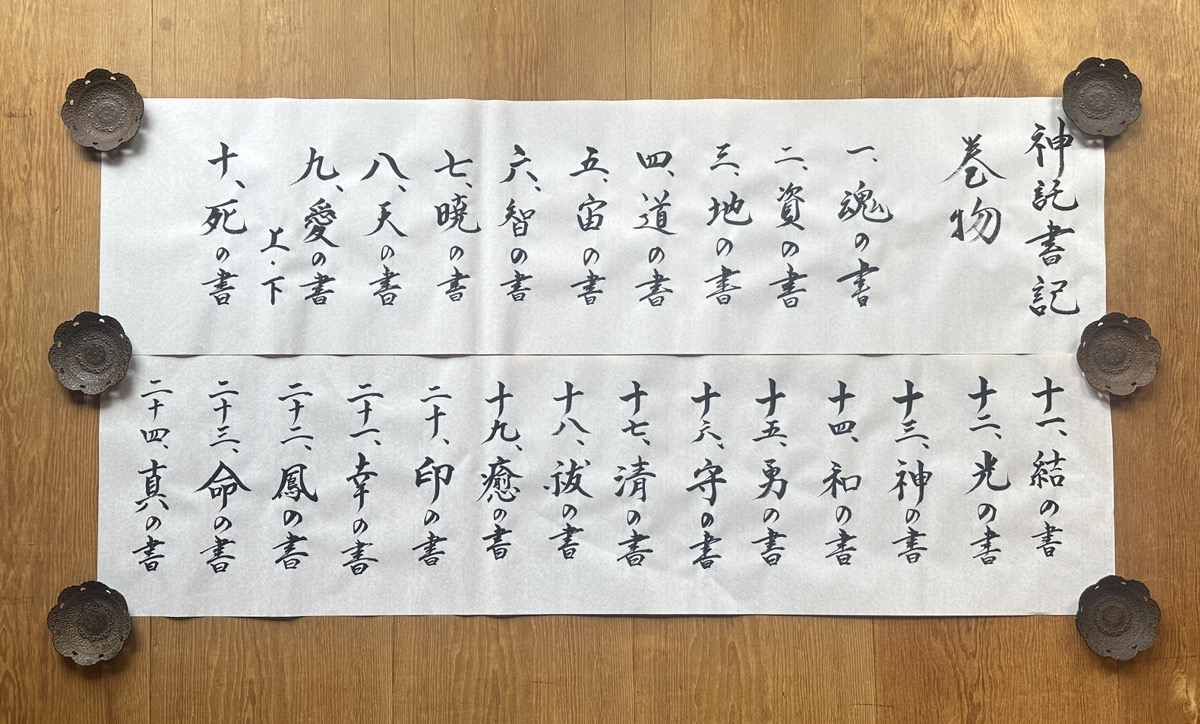 神託書記
巻物
一、魂の書
二、資の書
三、地の書
四、道の書
五、宙の書
六、智の書
七、暁の書
八、天の書
九、愛の書
上・下
十、死の書
十一、結の書
十二、光の書
十三、神の書
十四、和の書
十五、勇の書
十六、守の書
十七、清の書
十八、祓の書
十九、癒の書
二十、印の書
二十一、幸の書
二十二、鳳の書
二十三、命の書
二十四、真の書